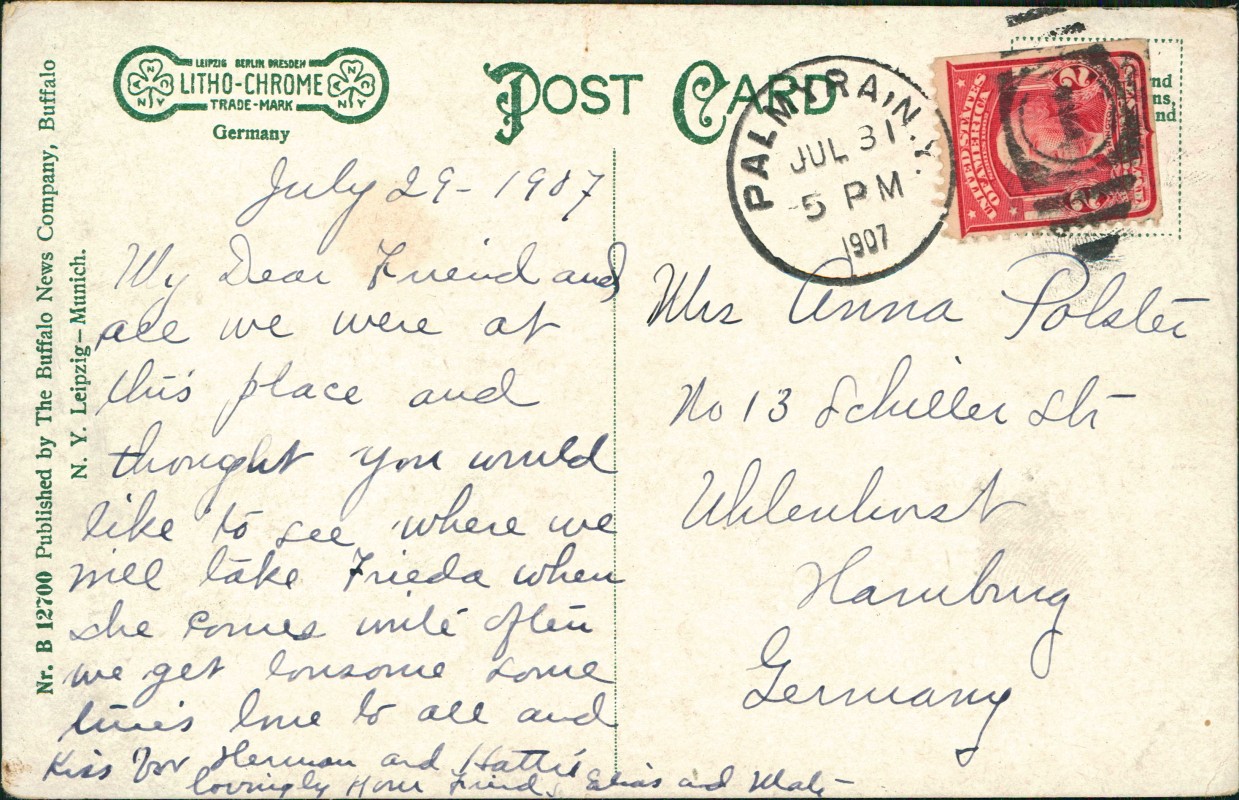 LEIPZIG BERLIN DRESDEN
LITHO-CHROME
TRADE-MARK
Germany
POST CARD
PALMYRA, N.Y.
JUL 31
5 PM
1907
UNITED STATES
OF AMERICA
2
2
nd
ns,
nd
Nr. B 12700 Published by The Buffalo News Company, Buffalo
N. Y. Leipzig—Munich.
July 29- 1907
My Dear Friend and
all we were at
this place and
thought you would
like to see where we
will take Frieda when
she comes write often
we get lonsome some
times love to all and
Kiss for Herman and Hattie
lovingly Your Friends Elias and
Mrs Anna Polster
No 13 Schiller Str
Uhlenhorst
Hamburg
Germany